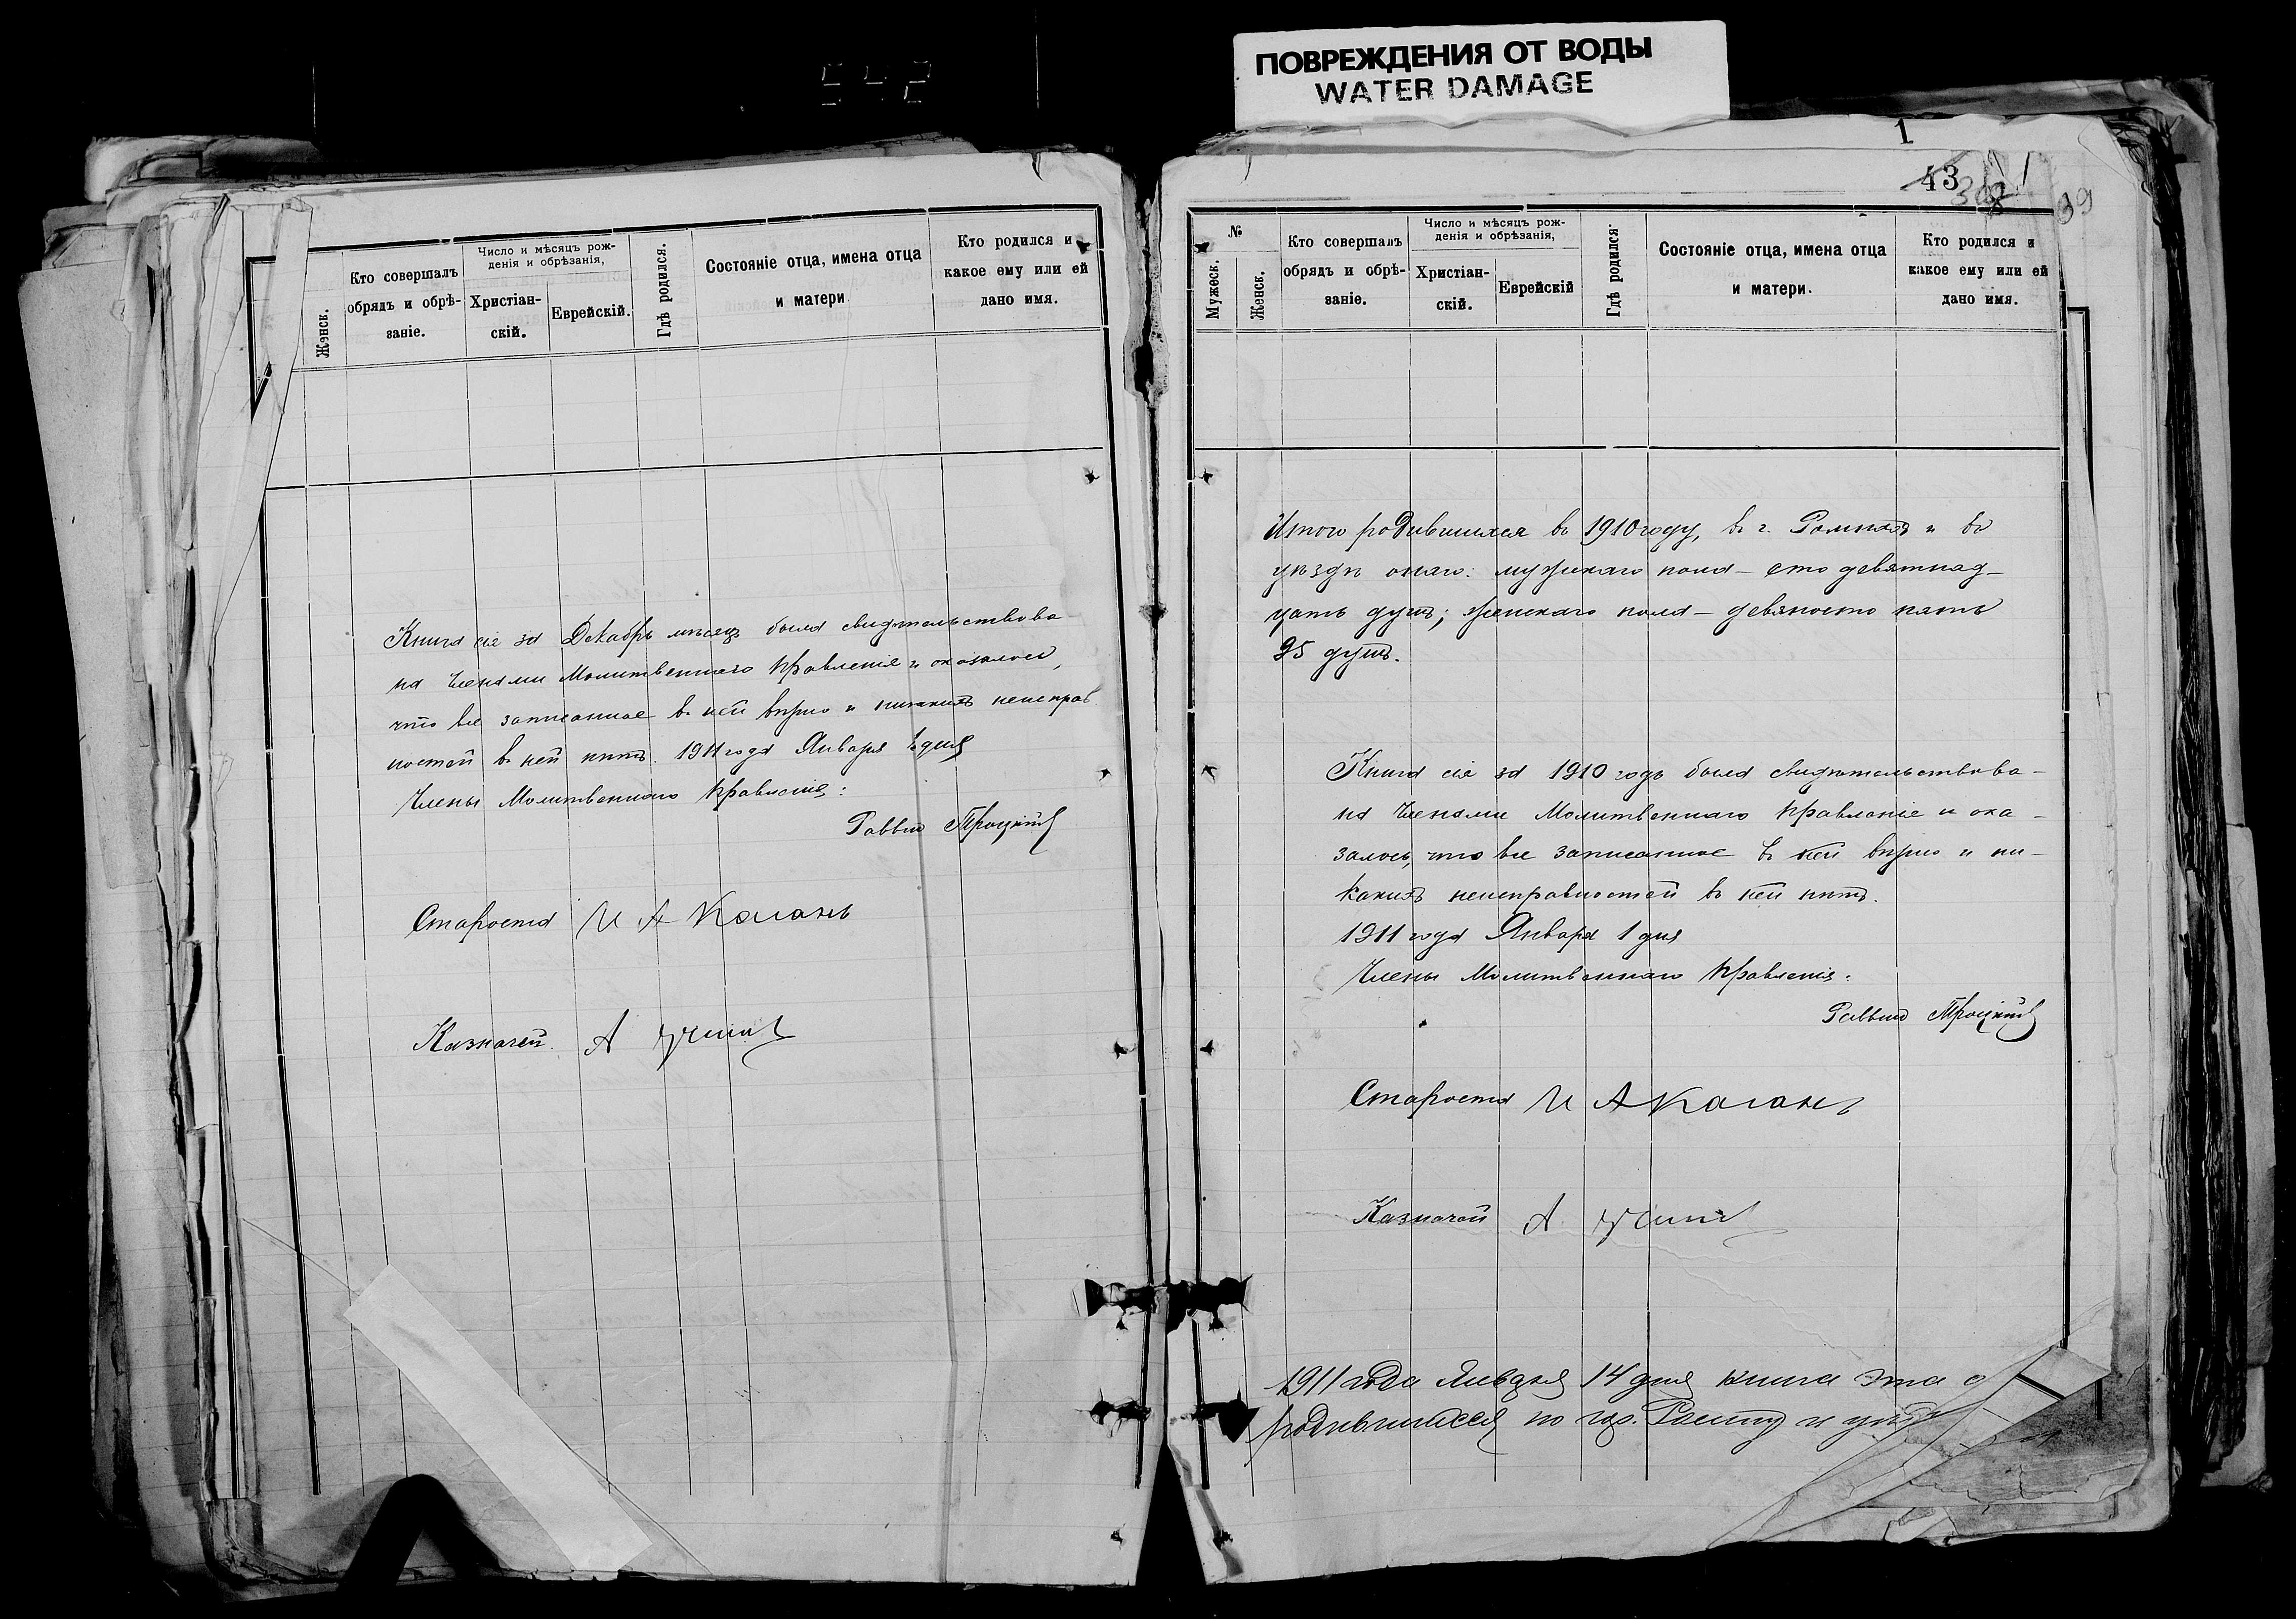 ПОВРЕЖДЕНИЯ ОТ ВОДЫ
WATER DAMAGE
Женск.
Кто совершалъ
обрядъ и обрѣ-
заніе.
Число и мѣсяцъ рож-
денія и обрѣзанія,
Христіан-
скій.
Еврейскій.
Гдѣ родился.
Состояніе отца, имена отца
и матери
Кто родился и
какое ему или ей
дано имя.
Книга сія за Декабрь мѣсяцъ была свидѣтельствова-
на Членами Молитвеннаго Правленія и оказалось,
что все записанное въ ней вѣрно и никакихъ неисправ
ностей въ ней нѣтъ. 1911 года Января 1 дня
Члены Молитвеннаго Правленія:
Раввинъ Троцкій
Староста И А Каганъ
Казначей А
1
43
99
№
Мужеск.
Женск.
Кто совершалъ
обрядъ и обрѣ-
заніе.
Число и мѣсяцъ рож-
денія и обрѣзанія,
Христіан-
скій.
Еврейскій
Гдѣ родился.
Состояніе отца, имена отца
и матери.
Кто родился и
какое ему или ей
дано имя.
Итого родившихся въ 1910 году, въ г. Ромнахъ и въ
уѣздѣ онаго: мужскаго пола – сто девятнад-
цать душъ; женскаго пола – девяносто пять
95 душъ.
Книга сія за 1910 годъ была свидѣтельствова-
на Членами Молитвеннаго Правленія и ока-
залось, что все записанное въ ней вѣрно и ни-
какихъ неисправностей въ ней нѣтъ.
1911 года Января 1 дня
Члены Молитвеннаго Правленія:
Раввинъ Троцкій
Староста И А Каганъ
Казначей А
1911 года Января 14 дня книга эта о
родившихся по гор. и